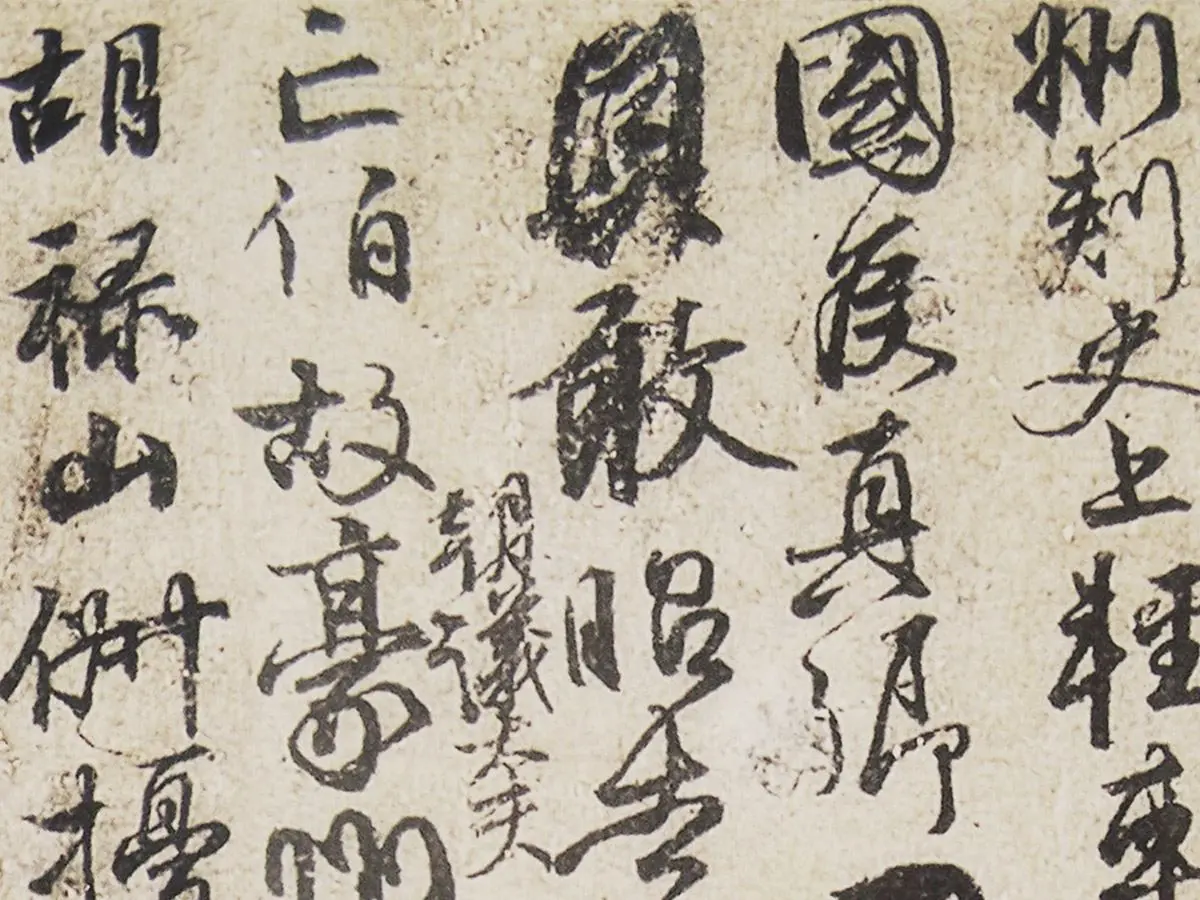 州刺史上輕車
國侯真卿
敢昭告
朝議大夫
亡伯故豪州
胡祿山俶擾